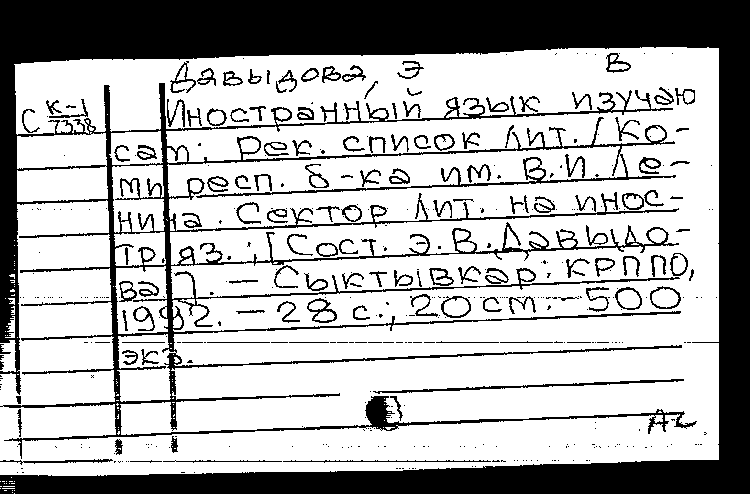 Давыдова, Э В
С К-1/7338 Иностранный язык изучаю
сам: Рек. список лит. / Ко-
ми респ. б-ка им. В.И. Ле-
нина. Сектор лит. на инос-
тр. яз.; [Сост. Э.В. Давыдо-
ва]. — Сыктывкар: КРППО,
1992. — 28 с.; 20 см. — 500
экз.